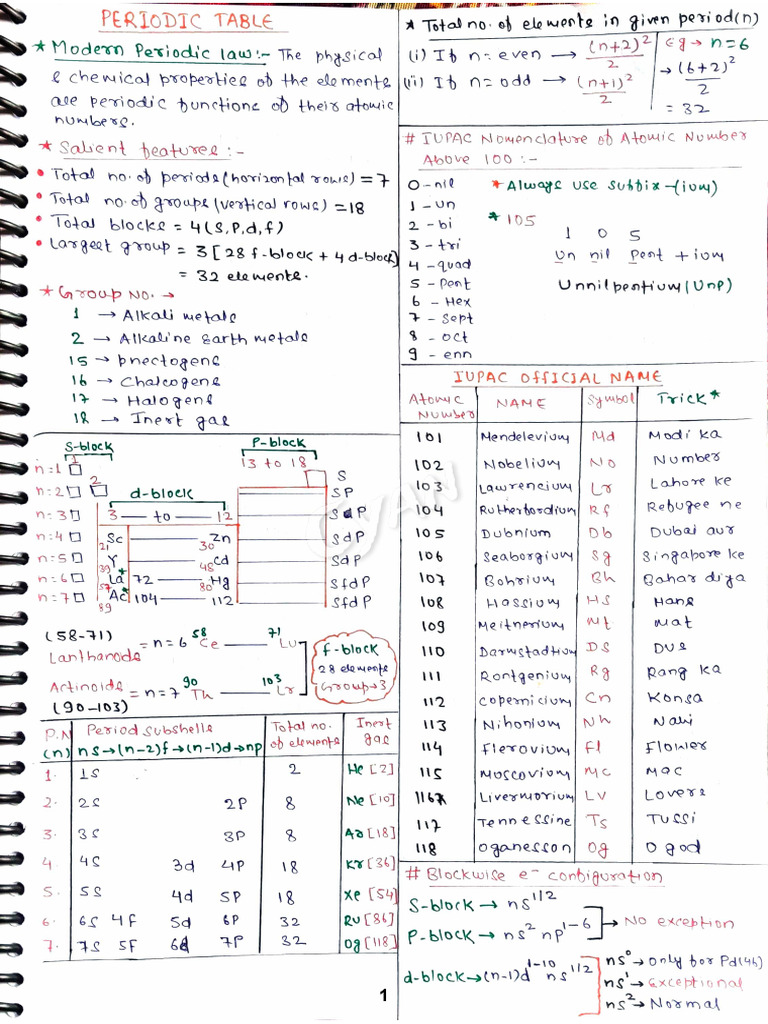 PERIODIC TABLE
* Modern Periodic law:- The physical
& chemical properties of the elements
are periodic functions of their atomic
numbers.
* Salient features:-
• Total no. of periods (horizontal rows) = 7
• Total no. of groups (vertical rows) = 18
• Total blocks = 4 (s, p, d, f)
• Largeet group = 3 [28 f-block + 4 d-block]
= 32 elements.
* Group No. →
1 → Alkali metals
2 → Alkaline Earth metals
15 → pnectogens
16 → Chalcogens
17 → Halogens
18 → Inert gas
S-block
P-block
1
13 to 18
n=1 S
2
n=2 SP
d-block
n=3 3 — to — 12 SdP
n=4 21 Sc — 30 Zn SdP
n=5 39 Y — 48 Cd SdP
n=6 57 La* 72 — 80 Hg SfdP
n=7 89 Ac* 104 — 112 SfdP
(58-71)
Lanthanods = n=6 58 Ce — 71 Lu
Actinoids = n=7 90 Th — 103 Lr
(90-103)
f-block
28 elements
Group→3
P.N (n) Period subshells ns→(n-2)f→(n-1)d→np Total no. of elements Inert gas
1. 1S 2 He [2]
2. 2S 2P 8 Ne [10]
3. 3S 3P 8 Ar [18]
4. 4S 3d 4P 18 Kr [36]
5. 5S 4d 5P 18 Xe [54]
6. 6S 4F 5d 6P 32 Rn [86]
7. 7S 5F 6d 7P 32 Og [118]
* Total no. of elements in given period (n)
(i) If n = even → (n+2)²/2
(ii) If n = odd → (n+1)²/2
Eg → n=6
→ (6+2)²/2
= 32
# IUPAC Nomenclature of Atomic Number
Above 100:-
0 - nil * Always use suffix - (ium)
1 - un
2 - bi * 105
3 - tri 1 0 5
4 - quad Un nil Pent + ium
5 - Pent Unnilpentium (Unp)
6 - Hex
7 - Sept
8 - oct
9 - enn
IUPAC OFFICIAL NAME
Atomic Number NAME Symbol Trick*
101 Mendelevium Md Modi ka
102 Nobelium No Number
103 Lawrencium Lr Lahore ke
104 Rutherfordium Rf Refugee ne
105 Dubnium Db Dubai aur
106 Seaborgium Sg Singapore ke
107 Bohrium Bh Bahar diya
108 Hassium HS Hans
109 Meitnerium Mt Mat
110 Darmstadtium DS Dus
111 Rontgenium Rg Rang ka
112 Copernicium Cn Konsa
113 Nihonium Nh Nahi
114 Flerovium Fl Flower
115 Moscovium Mc Mac
116 Livermorium Lv Lovers
117 Tennessine Ts Tussi
118 Oganesson Og O god
# Blockwise e⁻ configuration
S-block → ns¹/²
P-block → ns² np¹⁻⁶
→ No exception
d-block → (n-1)d¹⁻¹⁰ ns¹/²
ns⁰ → only for Pd (46)
ns¹ → Exceptional
ns² → Normal
1